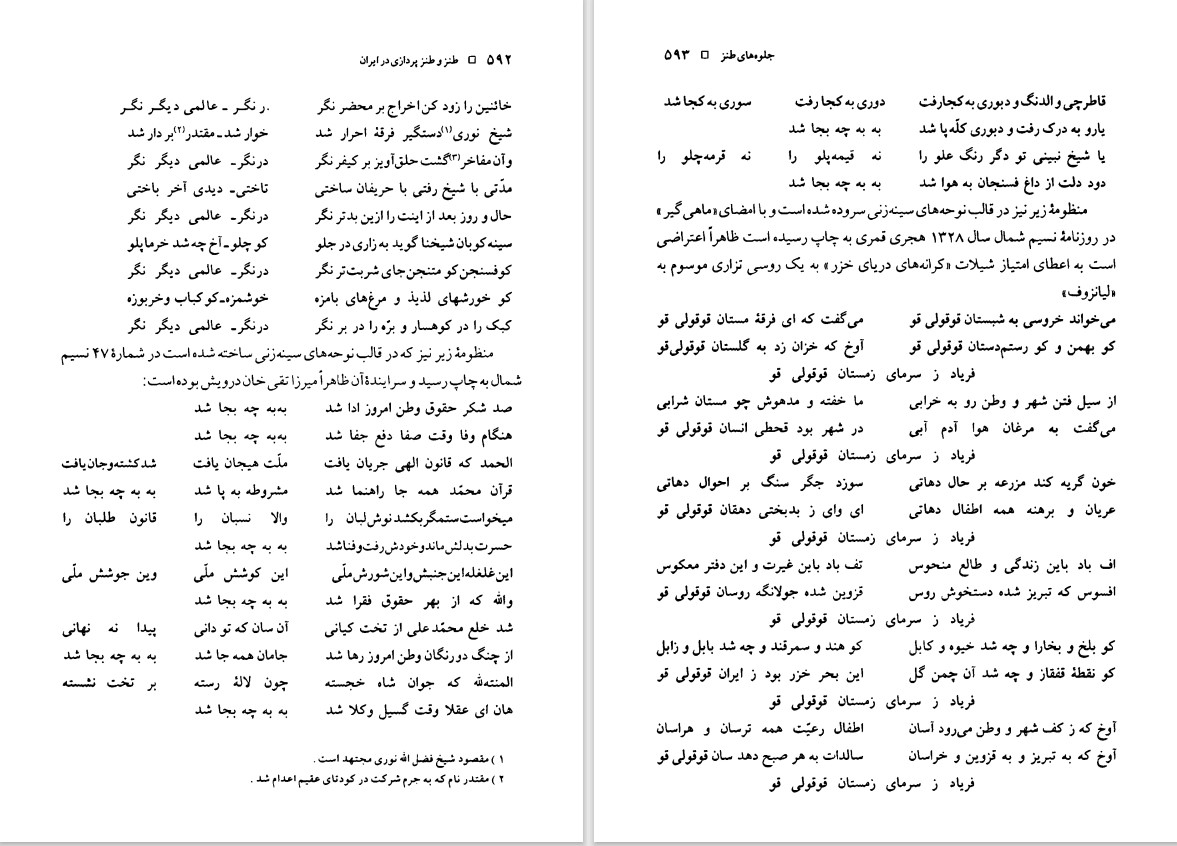 ۵۹۲ □ طنز و طنز پردازی در ایران
خائنین را زود کن اخراج بر محضر نگر .ر نگـر ـ عالمی دیگـر نگـر
شیخ نوری(۱) دستگیر فرقهٔ احرار شد خوار شد ـ مقتدر(۲) بر دار شد
وآن مفاخر(۳) گشت حلق‌آویز بر کیفر نگر درنگرـ عالمی دیگر نگر
مدّتی با شیخ رفتی با حریفان ساختی تاختی‌ـ دیدی آخر باختی
حال و روز بعد از اینت را ازین بدتر نگر درنگرـ عالمی دیگر نگر
سینه‌کوبان شیخنا گوید به زاری در جلو کو چلو ـ آخ چه شد خرماپلو
کو فسنجن کو متنجن جای شربت‌تر نگر درنگرـ عالمی دیگر نگر
کو خورشهای لذیذ و مرغ‌های بامزه خوشمزه‌ـ کو کباب و خربوزه
کبک را در کوهسار و برّه را در بر نگر درنگرـ عالمی دیگر نگر
منظومهٔ زیر نیز که در قالب نوحه‌های سینه‌زنی ساخته شده است در شمارهٔ ۴۷ نسیم
شمال به چاپ رسید و سرایندهٔ آن ظاهراً میرزا تقی خان درویش بوده است:
صد شکر حقوق وطن امروز ادا شد به‌به چه بجا شد
هنگام وفا وقت صفا دفع جفا شد به‌به چه بجا شد
الحمد که قانون الهی جریان یافت ملّت هیجان یافت شد کشته و جان یافت
قرآن محمّد همه جا راهنما شد مشروطه به پا شد به به چه بجا شد
میخواست ستمگر بکشد نوش‌لبان را والا نسبان را قانون طلبان را
حسرت بدلش ماند و خودش رفت و فنا شد به به چه بجا شد
این غلغله این جنبش و این شورش ملّی این کوشش ملّی وین جوشش ملّی
والله که از بهر حقوق فقرا شد به به چه بجا شد
شد خلع محمّدعلی از تخت کیانی آن سان که تو دانی پیدا نه نهانی
از چنگ دورنگان وطن امروز رها شد جامان همه جا شد به به چه بجا شد
المنته‌لله که جوان شاه خجسته چون لالهٔ رسته بر تخت نشسته
هان ای عقلا وقت گسیل وکلا شد به به چه بجا شد
۱ ) مقصود شیخ فضل الله نوری مجتهد است .
۲ ) مقتدر نام که به جرم شرکت در کودتای عقیم اعدام شد .
جلوه‌های طنز □ ۵۹۳
قاطرچی و الدنگ و دبوری به کجا رفت دوری به کجا رفت سوری به کجا شد
یارو به درک رفت و دبوری کلّه پا شد به به چه بجا شد
یا شیخ نبینی تو دگر رنگ علو را نه قیمه‌پلو را نه قرمه‌چلو را
دود دلت از داغ فسنجان به هوا شد به به چه بجا شد
منظومهٔ زیر نیز در قالب نوحه‌های سینه‌زنی سروده شده است و با امضای «ماهی‌گیر»
در روزنامهٔ نسیم شمال سال ۱۳۲۸ هجری قمری به چاپ رسیده است ظاهراً اعتراضی
است به اعطای امتیاز شیلات «کرانه‌های دریای خزر» به یک روسی تزاری موسوم به
«لیانزوف»
می‌خواند خروسی به شبستان قوقولی قو می‌گفت که ای فرقهٔ مستان قوقولی قو
کو بهمن و کو رستم‌دستان قوقولی قو آوخ که خزان زد به گلستان قوقولی‌قو
فریاد ز سرمای زمستان قوقولی قو
از سیل فتن شهر و وطن رو به خرابی ما خفته و مدهوش چو مستان شرابی
می‌گفت به مرغان هوا آدم آبی در شهر بود قحطی انسان قوقولی قو
فریاد ز سرمای زمستان قوقولی قو
خون گریه کند مزرعه بر حال دهاتی سوزد جگر سنگ بر احوال دهاتی
عریان و برهنه همه اطفال دهاتی ای وای ز بدبختی دهقان قوقولی قو
فریاد ز سرمای زمستان قوقولی قو
اف باد باین زندگی و طالع منحوس تف باد باین غیرت و این دفتر معکوس
افسوس که تبریز شده دستخوش روس قزوین شده جولانگه روسان قوقولی قو
فریاد ز سرمای زمستان قوقولی قو
کو بلخ و بخارا و چه شد خیوه و کابل کو هند و سمرقند و چه شد بابل و زابل
کو نقطهٔ قفقاز و چه شد آن چمن گل این بحر خزر بود ز ایران قوقولی قو
فریاد ز سرمای زمستان قوقولی قو
آوخ که ز کف شهر و وطن می‌رود آسان اطفال رعیّت همه ترسان و هراسان
آوخ که به تبریز و به قزوین و خراسان سالدات به هر صبح دهد سان قوقولی قو
فریاد ز سرمای زمستان قوقولی قو